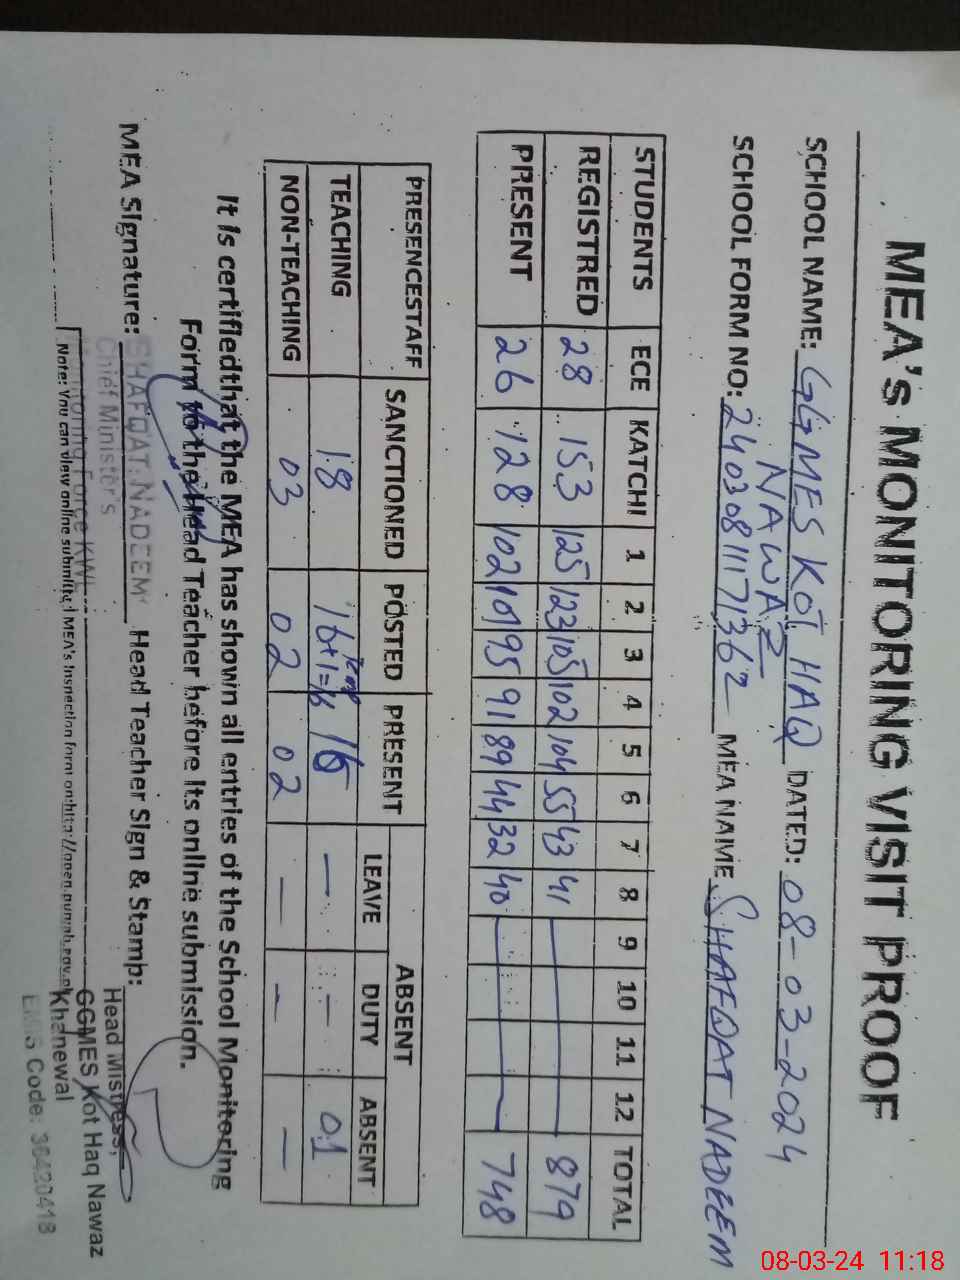 MEA's MONITORING VISIT PROOF
SCHOOL NAME: GGMES KOT HAQ NAWAZ DATED: 08-03-2024
SCHOOL FORM NO: 24030811171362 MEA NAME SHAFQAT NADEEM
STUDENTS ECE KATCHI 1 2 3 4 5 6 7 8 9 10 11 12 TOTAL
REGISTRED 28 153 125 123 105 102 104 55 43 41 879
PRESENT 26 128 102 101 95 91 89 44 32 40 748
PRESENCESTAFF SANCTIONED POSTED PRESENT ABSENT
LEAVE DUTY ABSENT
TEACHING 18 16+1= 16 — — 01
NON-TEACHING 03 02 02 — — —
It is certifiedthat the MEA has shown all entries of the School Monitoring
Form to the Head Teacher before its online submission.
MEA Signature: Head Teacher Sign & Stamp:
SHAFQAT NADEEM
Chief Minister's
Monitoring Force KWL
Head Mistress,
GGMES Kot Haq Nawaz
Khanewal
EMIS Code: 36420418
Note: You can view online submitted MEA's Inspection form on http://open.punjab.gov.pk
08-03-24 11:18